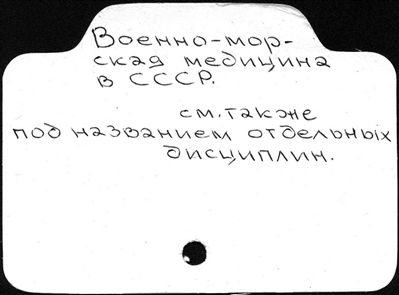 Военно-мор-
ская медицина
в СССР.
см. также
под названием отдельных
дисциплин.